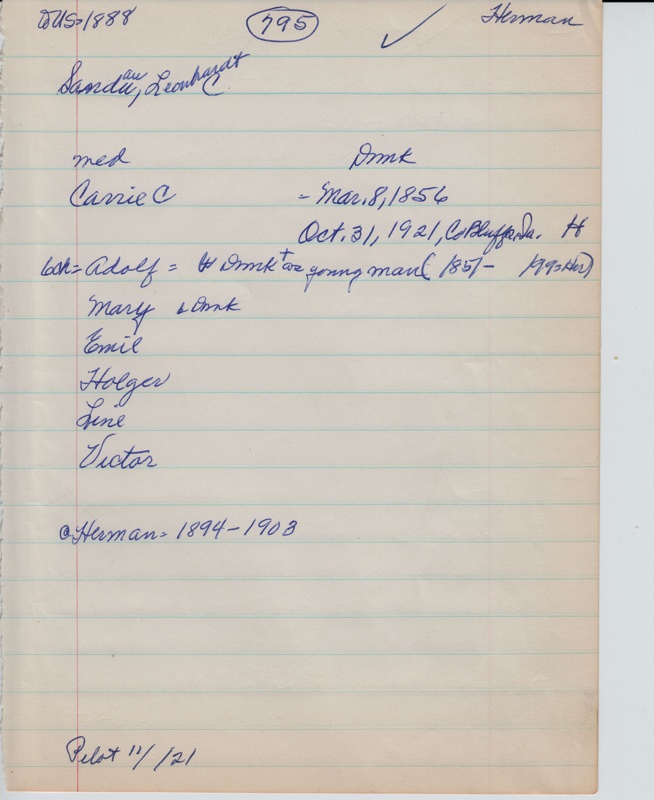 to US = 1888 795 ✓ Herman
Sandau, Leonhardt C
med Dmk
Carrie C - Mar. 8, 1856
Oct. 31, 1921, Co Bluffs, Ia. H
6 ch = Adolf = b Dmk + as young man (1851-
Mary b Dmk
Emil
Holger
Line
Victor
@ Herman = 1894-1903
Pilot 11/ /21